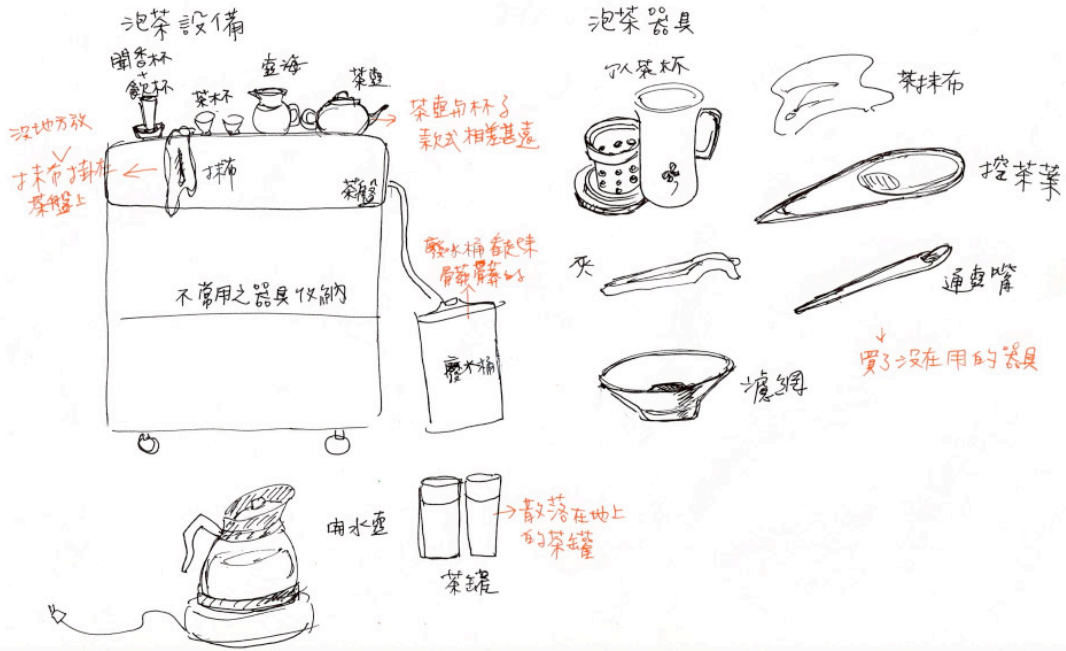 泡茶設備
聞香杯
+
飲杯
茶杯
壺海
茶壺
茶壺與杯子
款式相差甚遠
沒地方放
抹布掛在
茶盤上
抹布
茶盤
廢水桶看起來
髒髒的
不常用之器具收納
廢水桶
用水壺
茶罐
散落在地上
的茶罐
泡茶器具
個人茶杯
茶抹布
挖茶葉
夾
通壺嘴
買了沒在用的器具
濾網